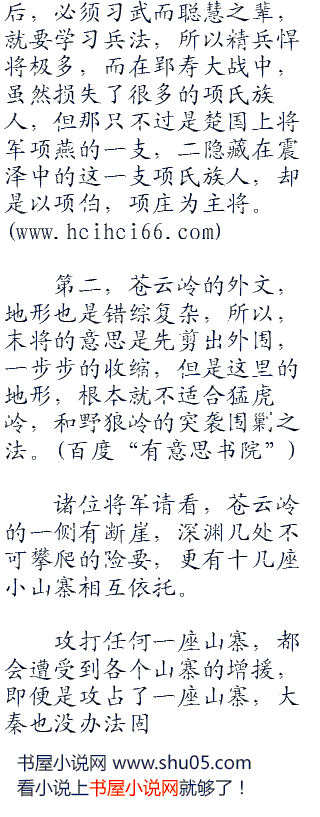 后，必须习武而聪慧之辈，
就要学习兵法，所以精兵悍
将极多，而在郢寿大战中，
虽然损失了很多的项氏族
人，但那只不过是楚国上将
军项燕的一支，二隐藏在震
泽中的这一支项氏族人，却
是以项伯，项庄为主将。
(www.hcihci66.com)
第二，苍云岭的外文，
地形也是错综复杂，所以，
末将的意思是先剪出外围，
一步步的收缩，但是这里的
地形，根本就不适合猛虎
岭，和野狼岭的突袭围剿之
法。(百度“有意思书院”)
诸位将军请看，苍云岭
的一侧有断崖，深渊几处不
可攀爬的险要，更有十几座
小山寨相互依托。
攻打任何一座山寨，都
会遭受到各个山寨的增援，
即便是攻占了一座山寨，大
秦也没办法固
书屋小说网 www.shu05.com
看小说上书屋小说网就够了！